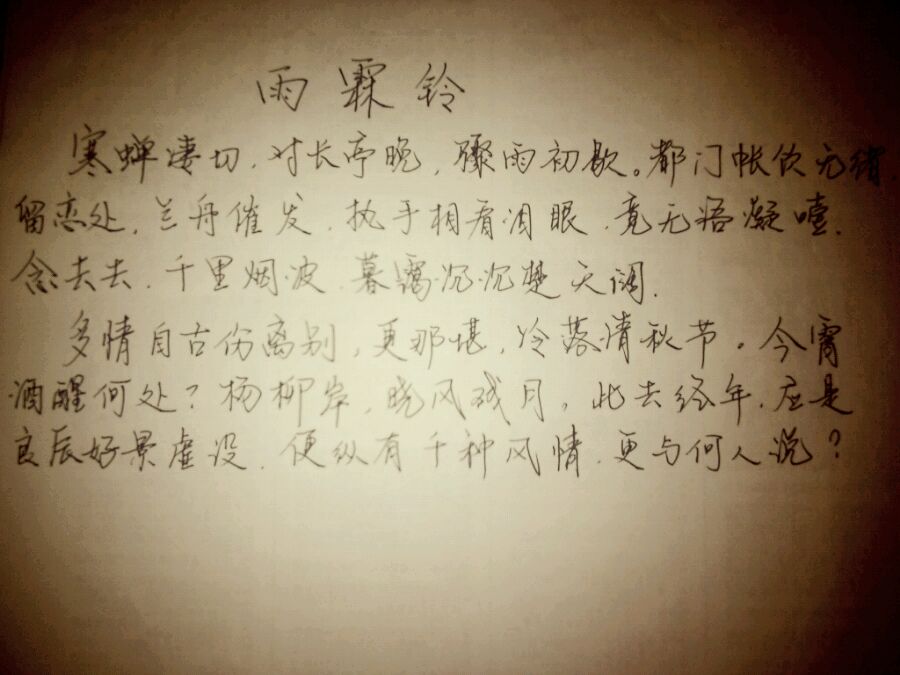 雨霖铃
寒蝉凄切，对长亭晚，骤雨初歇。都门帐饮无绪，
留恋处，兰舟催发，执手相看泪眼，竟无语凝噎。
念去去，千里烟波，暮霭沉沉楚天阔。
多情自古伤离别，更那堪，冷落清秋节。今宵
酒醒何处？杨柳岸，晓风残月，此去经年，应是
良辰好景虚设，便纵有千种风情，更与何人说？